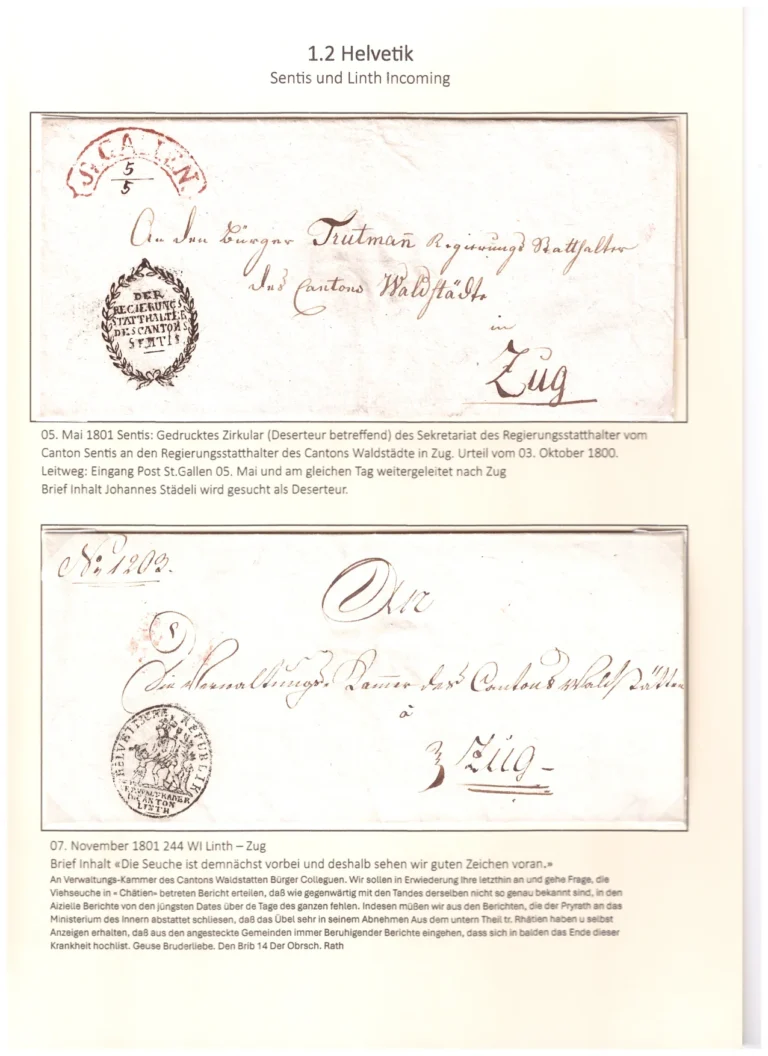 1.2 Helvetik
Sentis und Linth Incoming
S.GALLEN
5
5
An den Bürger Trutmañ Regierungs Statthalter
des Cantons Waldstädte
in
Zug
DER
REGIERUNGS
STATTHALTER
DES CANTONS
SENTIS
05. Mai 1801 Sentis: Gedrucktes Zirkular (Deserteur betreffend) des Sekretariat des Regierungsstatthalter vom
Canton Sentis an den Regierungsstatthalter des Cantons Waldstädte in Zug. Urteil vom 03. Oktober 1800.
Leitweg: Eingang Post St.Gallen 05. Mai und am gleichen Tag weitergeleitet nach Zug
Brief Inhalt Johannes Städeli wird gesucht als Deserteur.
No 1203.
An
Die Verwaltungs Kam̃er des Cantons Waldstätten
à
Zug
HELVETISCHE REPUBLIK
VERWALT.KAMER
D.CANTON
LINTH
07. November 1801 244 WI Linth – Zug
Brief Inhalt «Die Seuche ist demnächst vorbei und deshalb sehen wir guten Zeichen voran.»
An Verwaltungs-Kammer des Cantons Waldstatten Bürger Colleguen. Wir sollen in Erwiederung Ihre letzthin an und gehe Frage, die
Viehseuche in « Chätien» betreten Bericht erteilen, daß wie gegenwärtig mit den Tandes derselben nicht so genau bekannt sind, in den
Aizielle Berichte von den jüngsten Dates über de Tage des ganzen fehlen. Indesen müßen wir aus den Berichten, die der Pryrath an das
Ministerium des Innern abstattet schliesen, daß das Übel sehr in seinem Abnehmen Aus dem untern Theil tr. Rhätien haben u selbst
Anzeigen erhalten, daß aus den angesteckte Gemeinden immer Beruhigender Berichte eingehen, dass sich in balden das Ende dieser
Krankheit hochlist. Geuse Bruderliebe. Den Brib 14 Der Obrsch. Rath